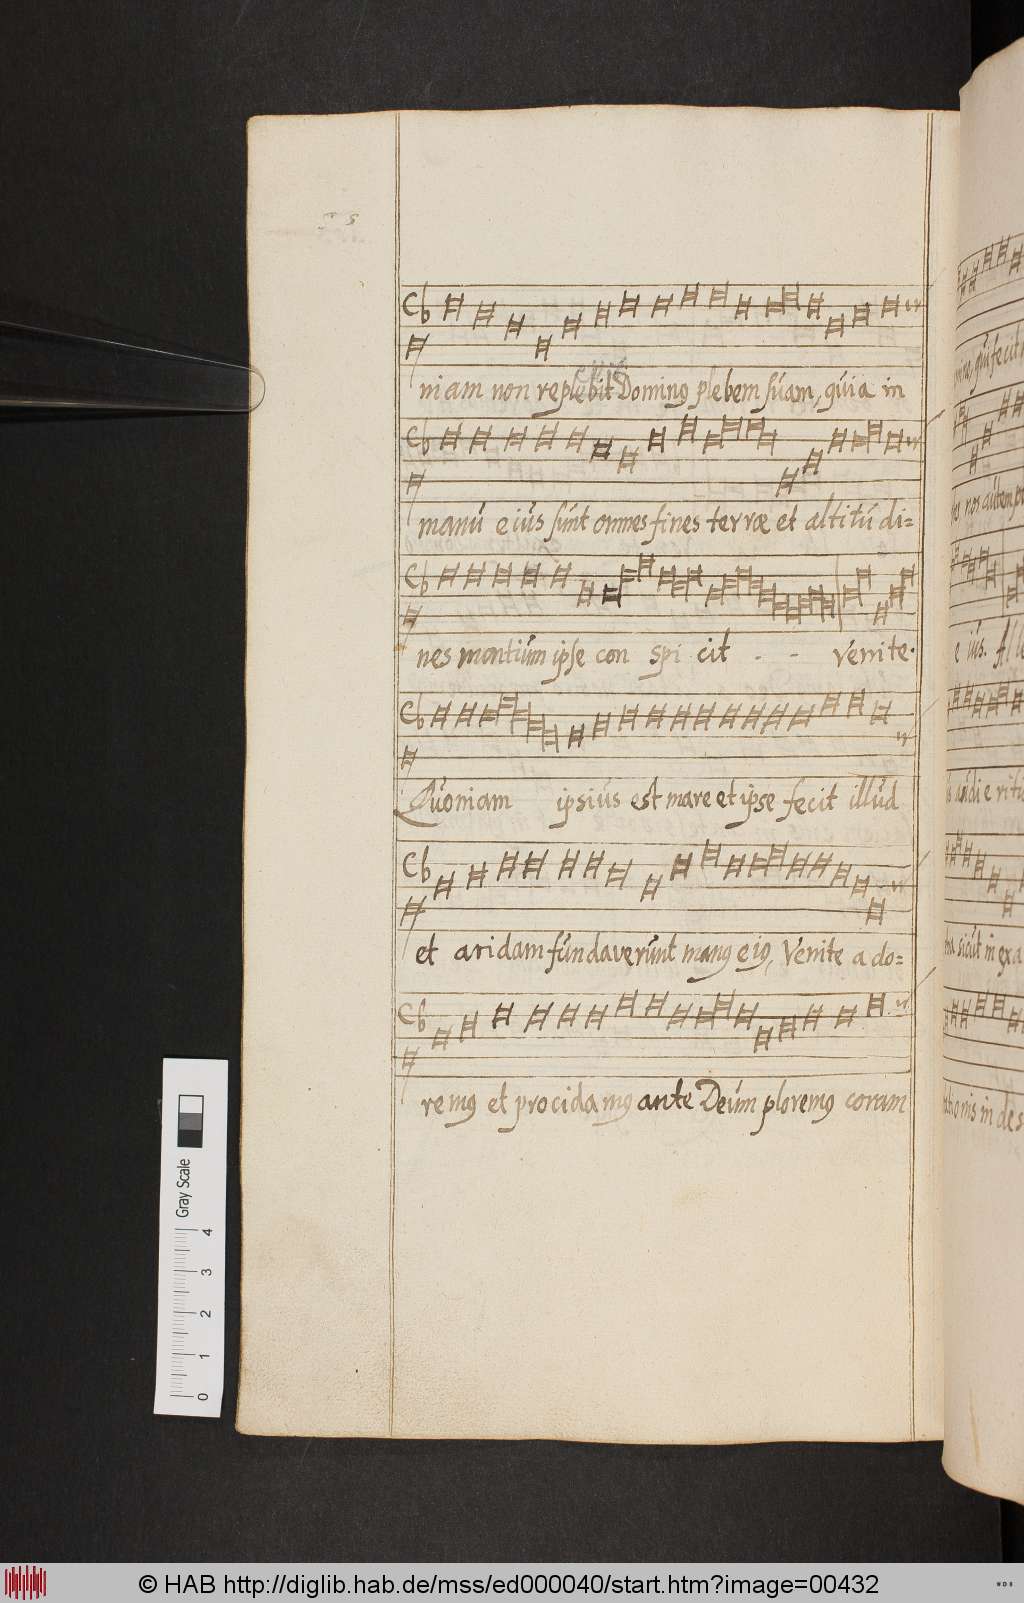 niam non replebit Doming plebem suam, quia in
manu eius sunt omnes fines terræ et altitu di=
nes montium ipse con spi cit - - Venite.
Quoniam ipsius est mare et ipse fecit illud
et aridam fundaverunt mang eig, Venite ado=
remg et procidamg ante Deum ploremg coram
eius. All
Gray Scale
0 1 2 3 4
© HAB http://diglib.hab.de/mss/ed000040/start.htm?image=00432